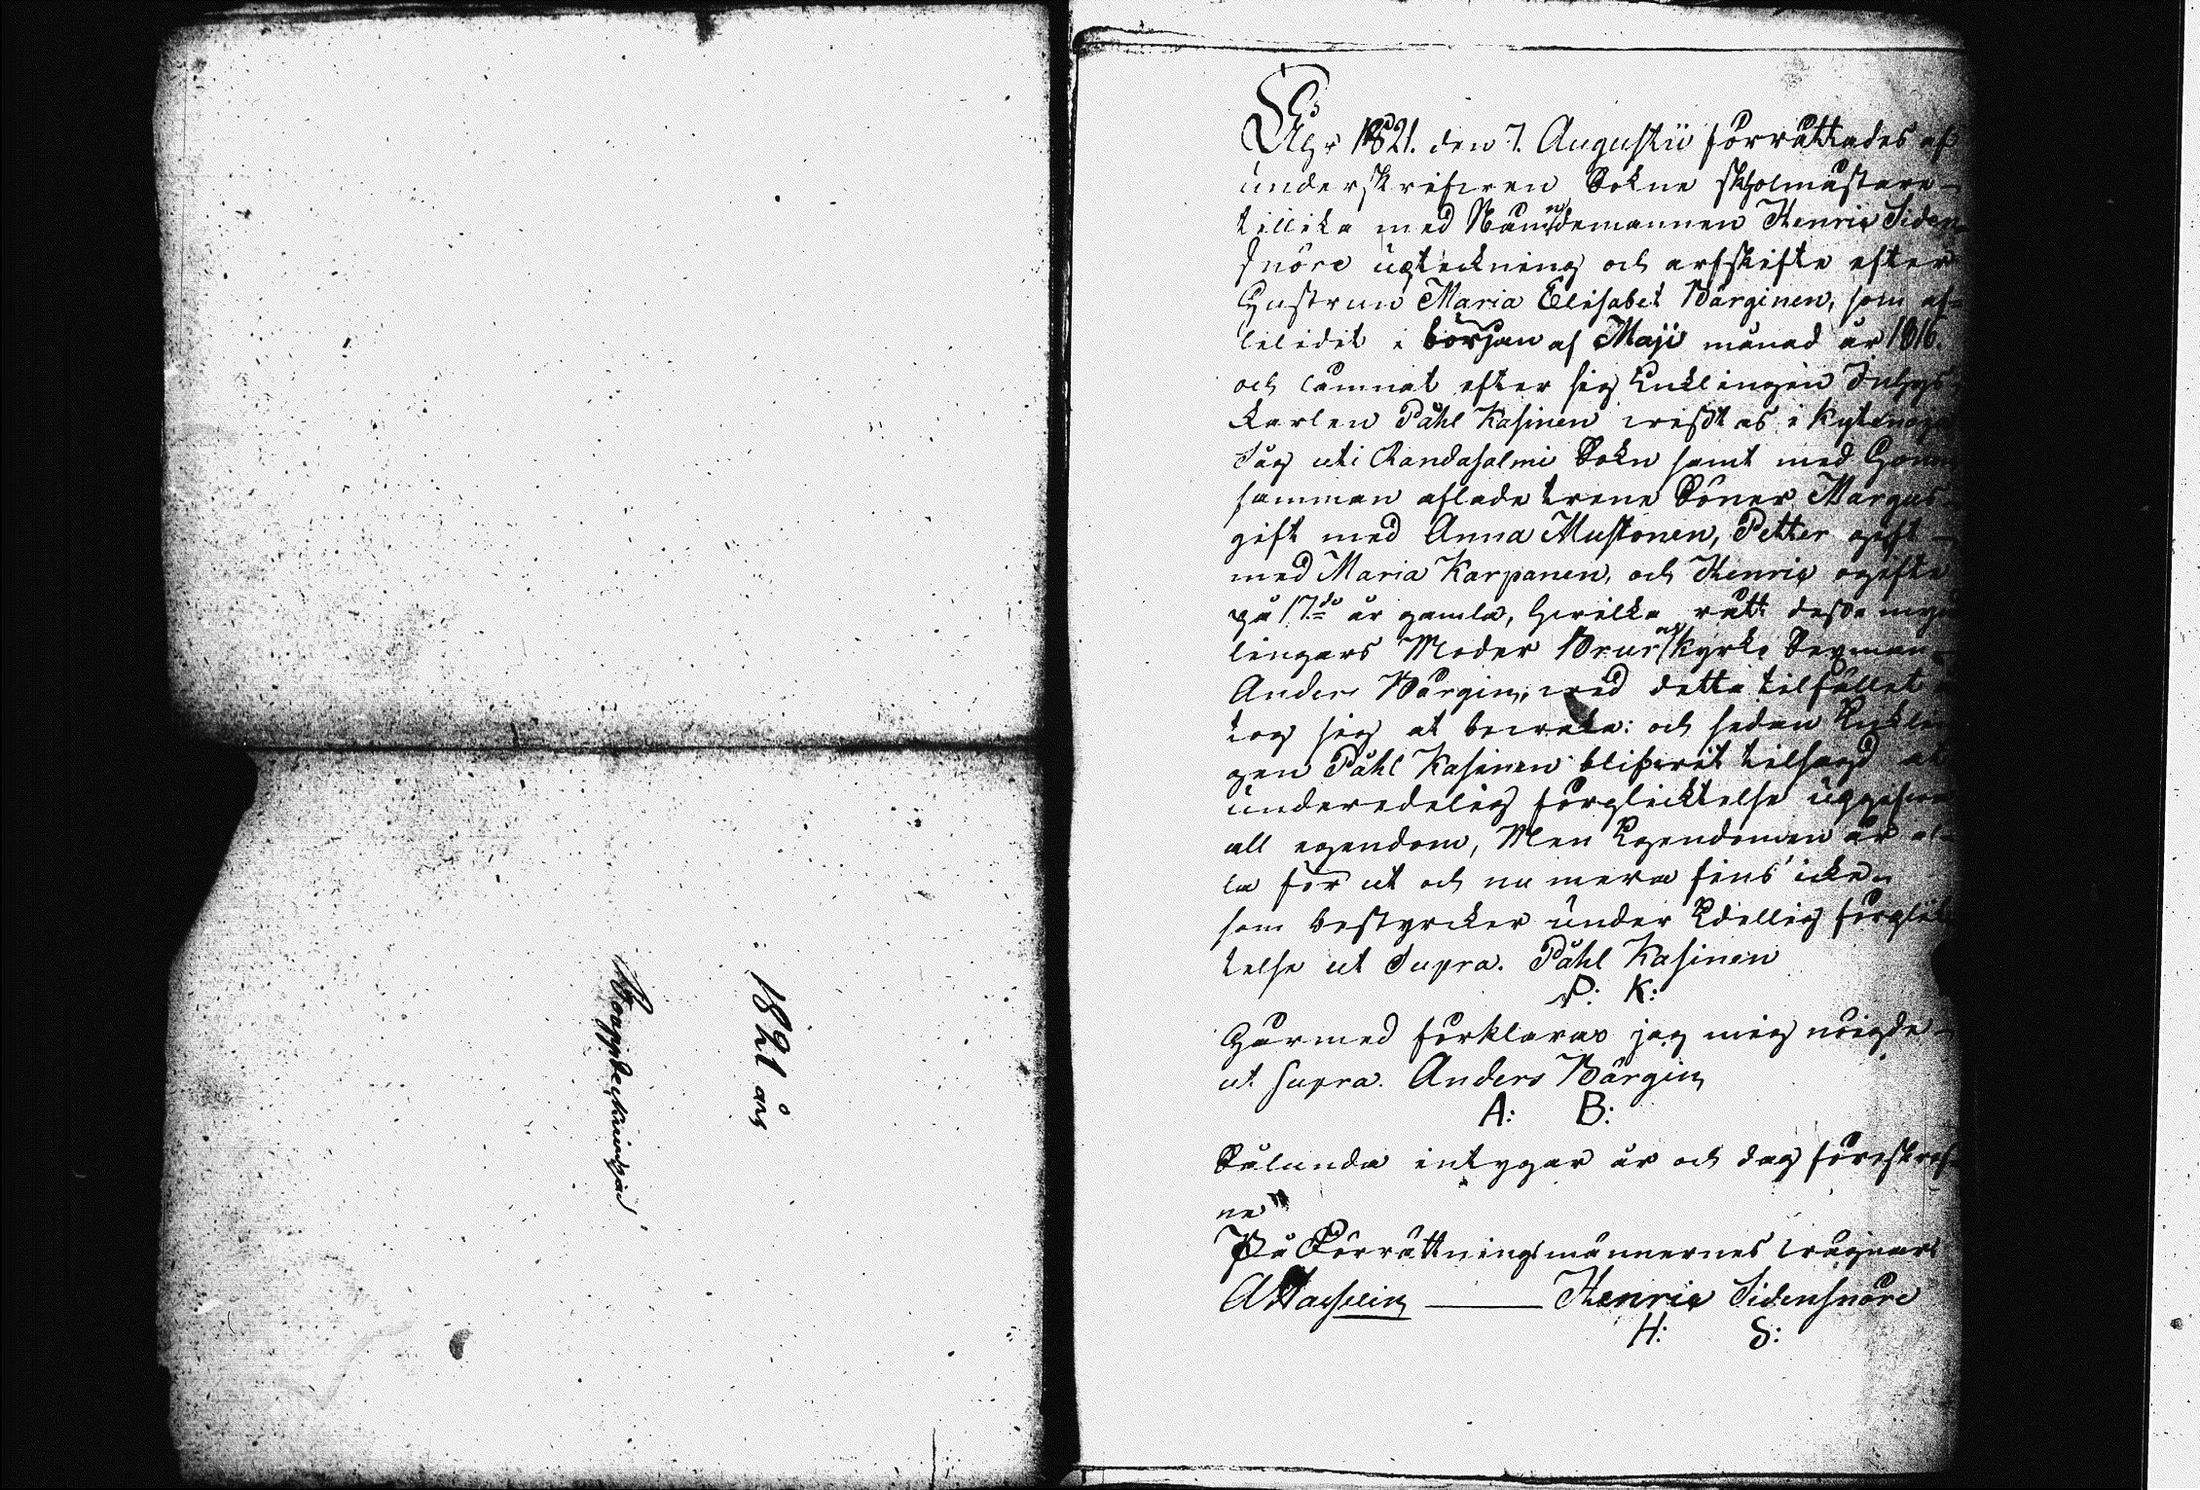 1821 års
Bouppteckningar
Åhr 1821. den 7. Augustii förrättades af
underskrifwen Sokne skholmästare
tillika med Nämndemannen Henric Siden
snöre upteckning och arfskifte efter
Hustrun Maria Elisabet Bärginen, som af-
lelidet i början af Maji månad år 1816.
och lämnat efter sig Enklingen Inhys
karlen Påhl Kasinen wistas i
Såg uti Randasalmi Sokn samt med Honom
samman aflade trene Söner Margus
gift med Anna Mustonen, Petter gift
med Maria Karpanen, och Henric ogifte
på 17:de år gamla, hwilka rätt desse myn
lingars Moder Brur och Kyrke Sexman
Anders Bärgin, wid detta tilfället
tog sig at bewaka: och sedan Enklin
gen Påhl Kasinen blifwit tilsagd at
under edelig förplicktelse uppgifwa
all egendom, Men Egendomen är al-
la för ut och nu mera fins icke.
som bestyrcker under Edellig förplik
telse ut Supra. Påhl Kasinen
P: K:
Härmed förklarar jag mig nöigde
ut supra. Anders Bärgin
A: B:
Sålunda intygar år och dag föreskref
ne
På Förrättningsmännernes wägnar
A Hasselin Henric Sidensnöre
H: S: